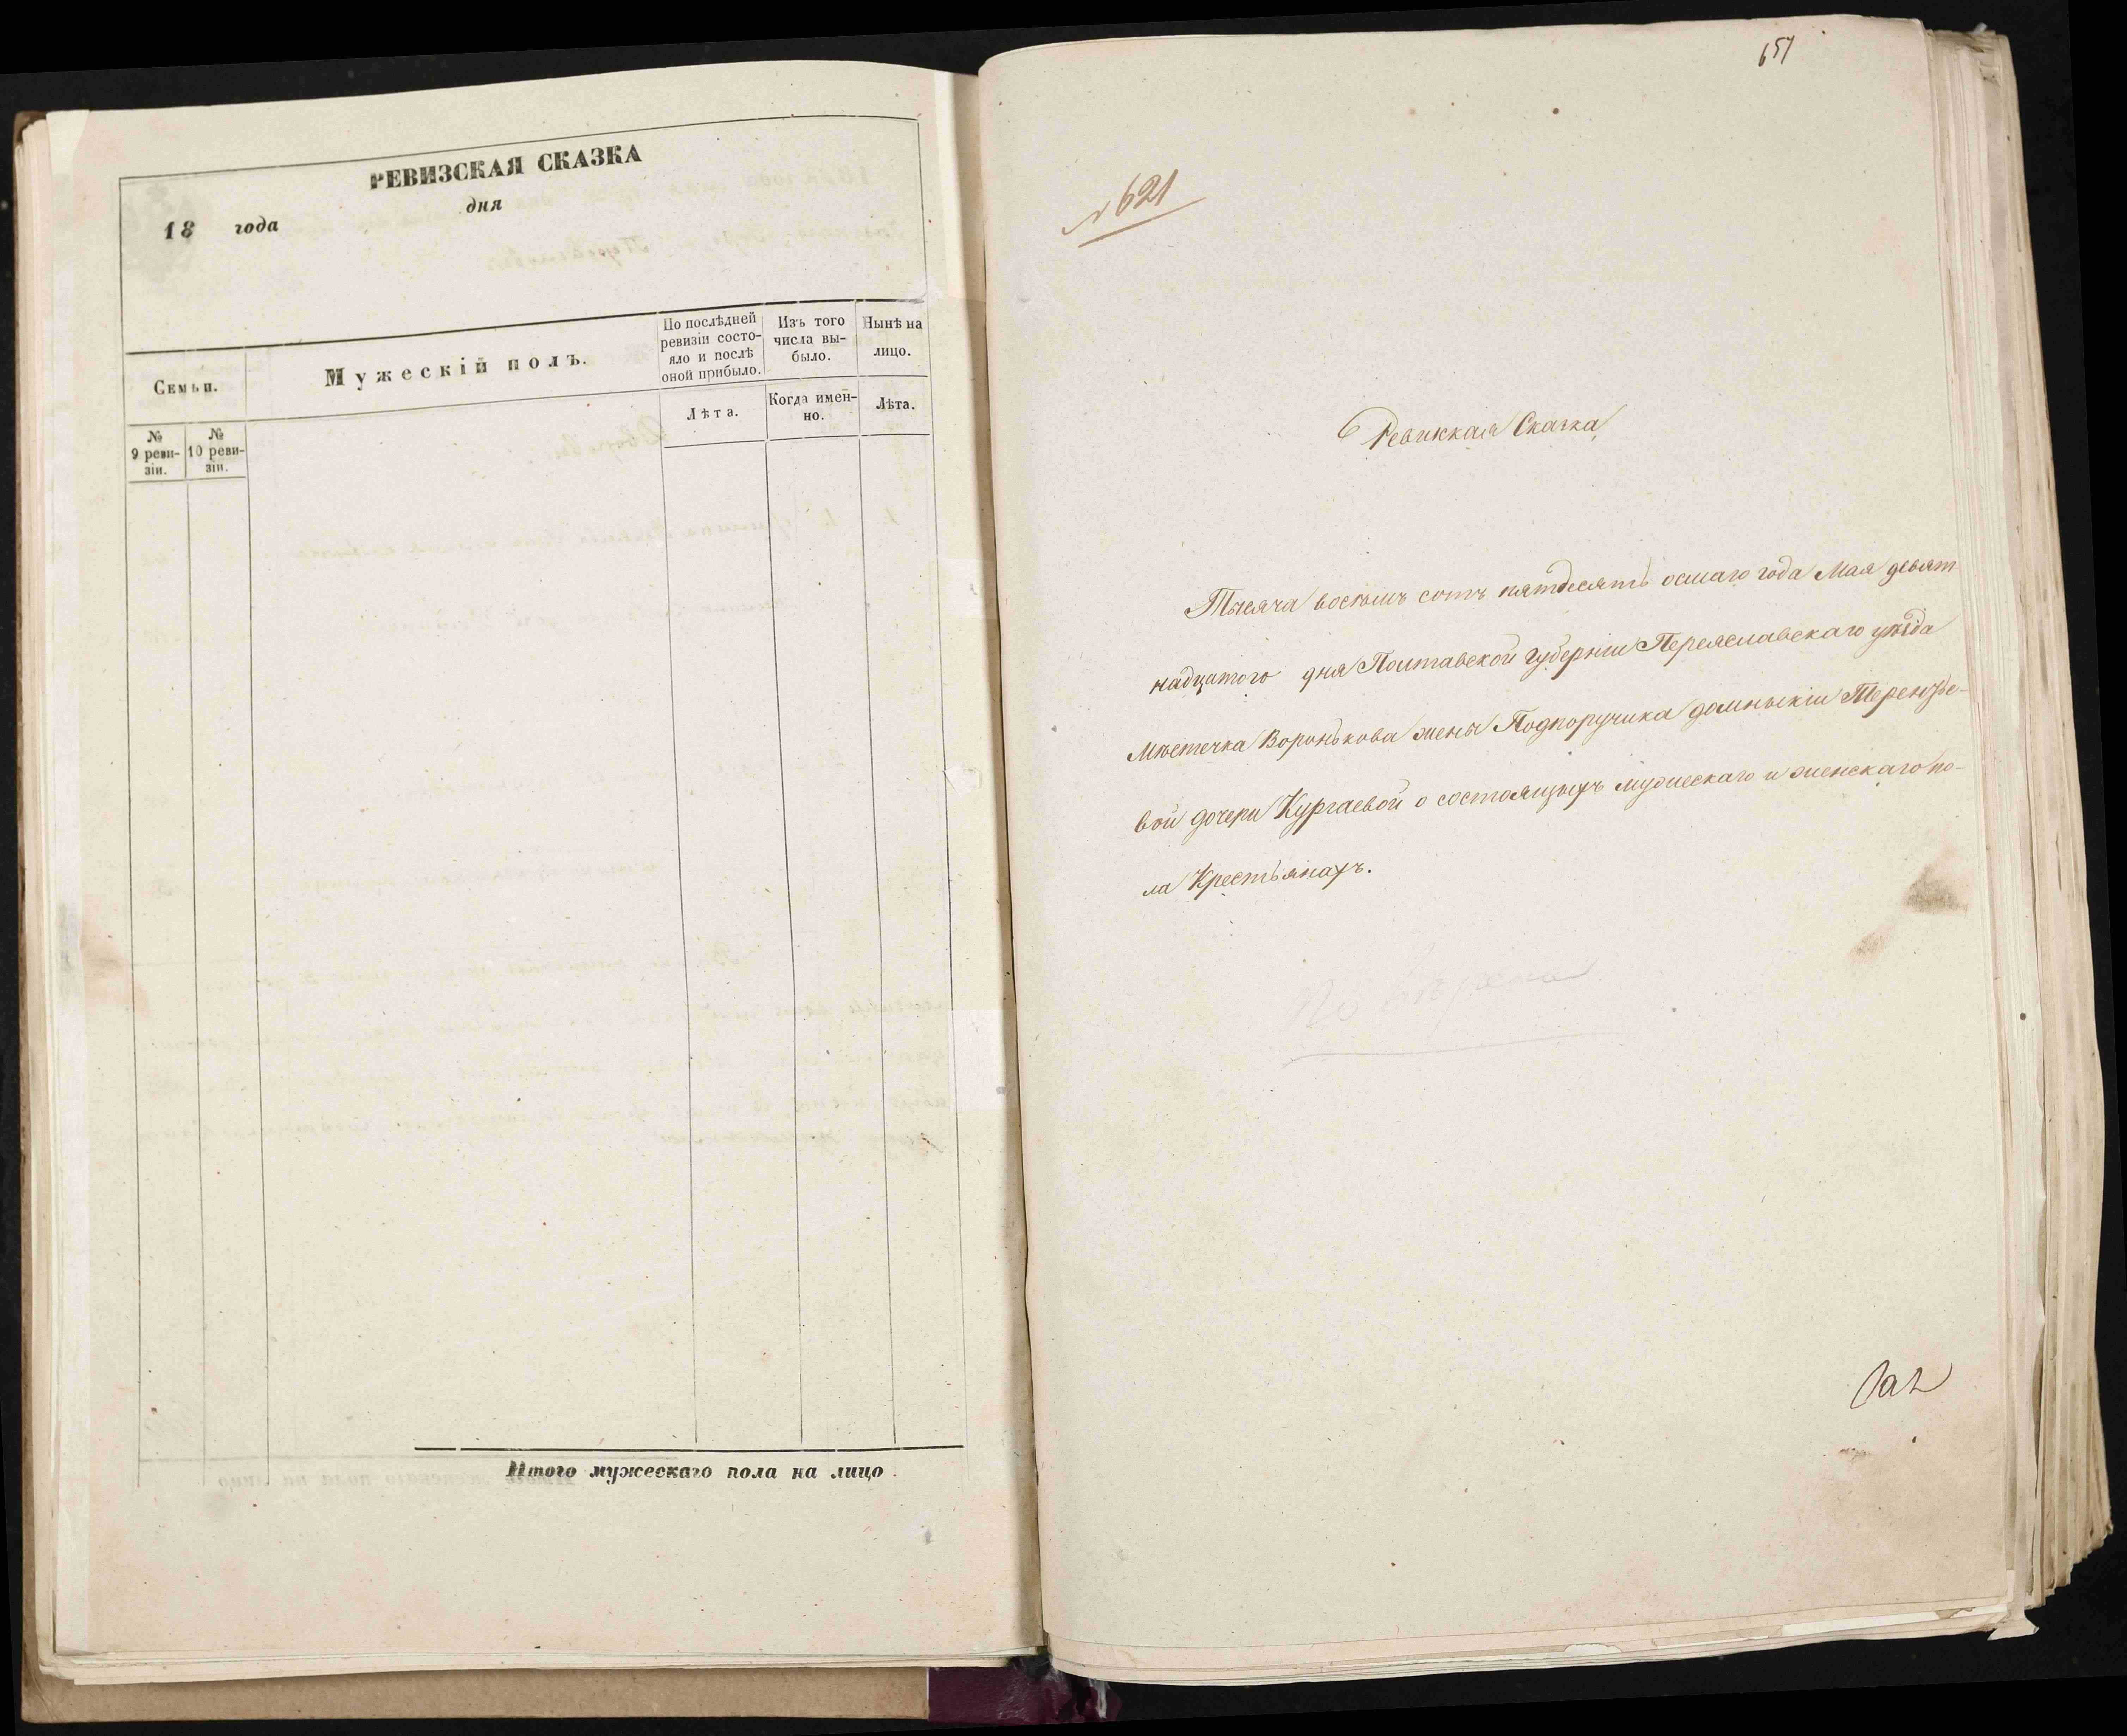 РЕВИЗСКАЯ СКАЗКА
18 года дня
Семьи.
Мужескій полъ.
По послѣдней ревизіи состо-
яло и послѣ оной прибыло.
Изъ того числа вы-
было.
Нынѣ на лицо.
Лѣта.
Когда имен-
но.
Лѣта.
№ 9 реви-
зіи.
№ 10 реви-
зіи.
Итого мужескаго пола на лицо
657
№ 621
Ревижкая Сказка
Тысяча восемь сотъ пятдесятъ осмаго года Мая девят
надцатого дня Полтавской губерніи Переяславскаго уѣзда
Мѣстечка Воронькова жены Подпоручика домныкіи Терентье-
вой дочери Кургаевой о состоящыхъ мужескаго и женскаго по-
ла Крестьянахъ.